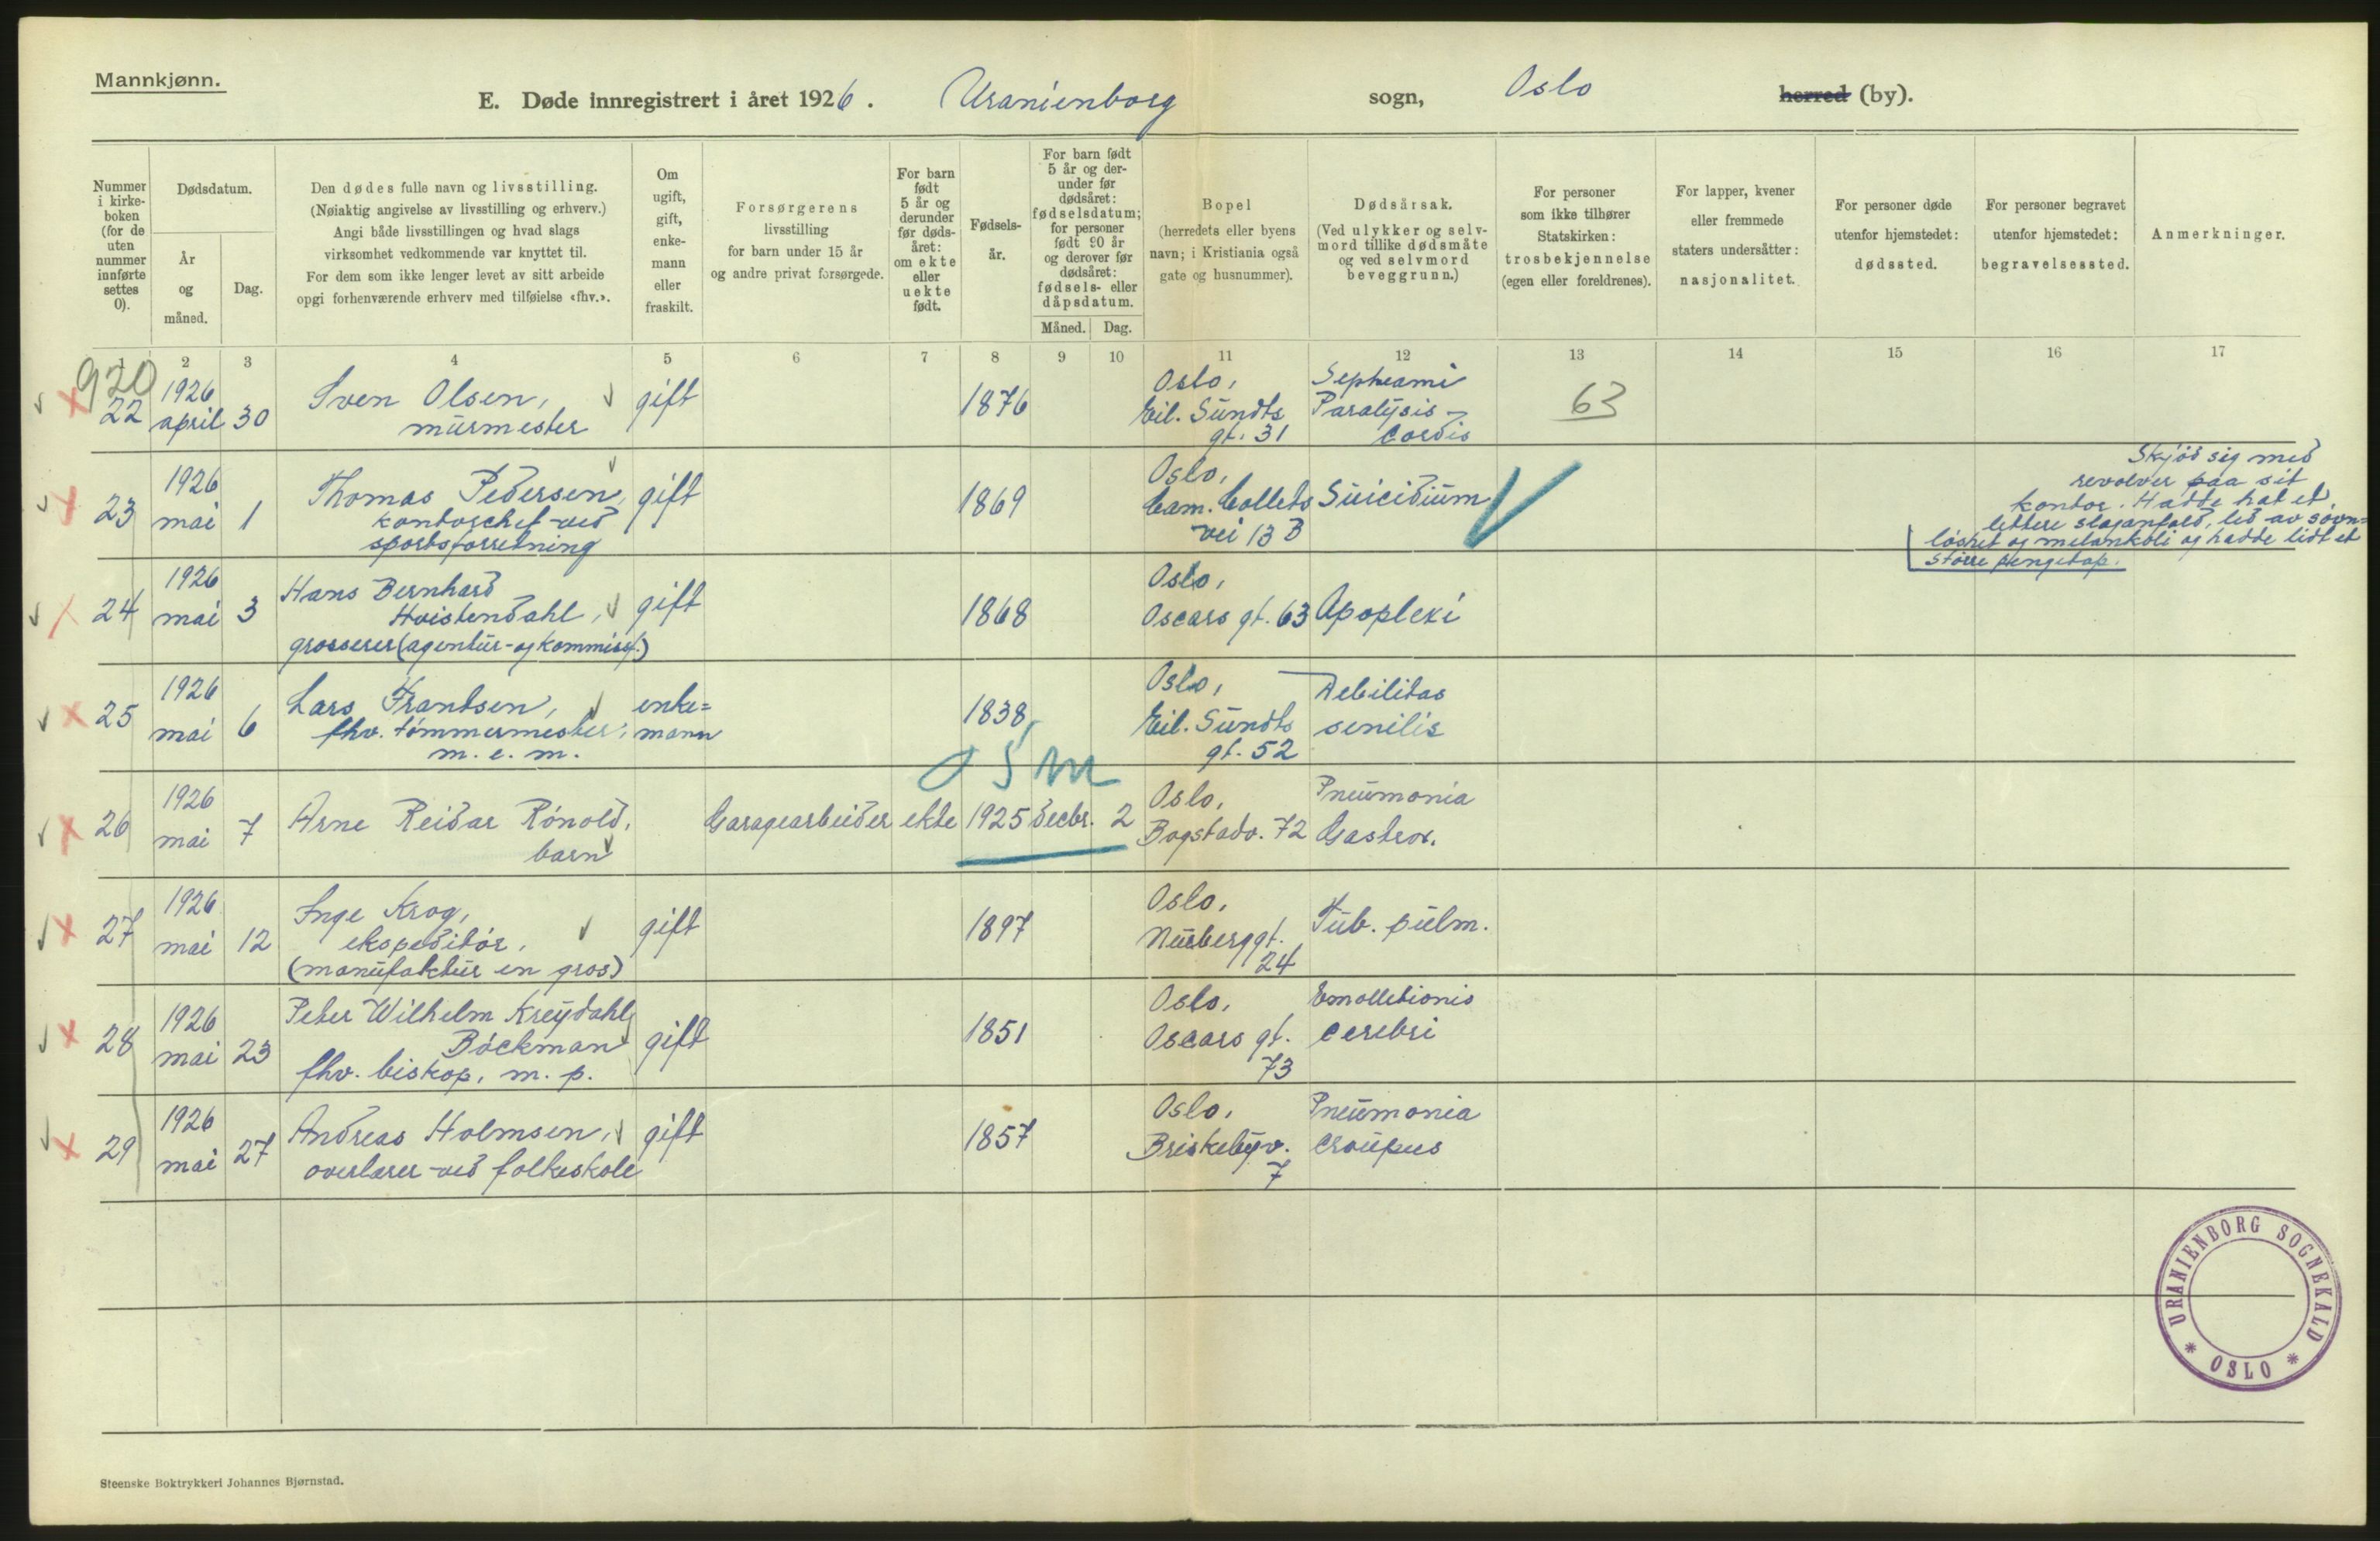 Mannkjønn.
E. Døde innregistrert i året 1926. Uranienborg sogn, Oslo herred (by).
Nummer i kirke-boken (for de uten nummer innførte settes 0).
Dødsdatum.
År og måned.
Dag.
Den dødes fulle navn og livsstilling.
(Nøiaktig angivelse av livsstilling og erhverv.)
Angi både livsstillingen og hvad slags
virksomhet vedkommende var knyttet til.
For dem som ikke lenger levet av sitt arbeide
opgi forhenværende erhverv med tilføielse «fhv.».
Om ugift, gift, enke-mann eller fraskilt.
Forsørgerens
livsstilling
for barn under 15 år
og andre privat forsørgede.
For barn født 5 år og derunder før døds-året: om ekte eller uekte født.
Fødsels-år.
For barn født 5 år og der-under før dødsåret: fødselsdatum; for personer født 90 år og derover før dødsåret: fødsels- eller dåpsdatum.
Måned. Dag.
Bopel
(herredets eller byens
navn; i Kristiania også
gate og husnummer).
Dødsårsak.
(Ved ulykker og selv-
mord tillike dødsmåte
og ved selvmord
beveggrunn.)
For personer
som ikke tilhører
Statskirken:
trosbekjennelse
(egen eller foreldrenes).
For lapper, kvener
eller fremmede
staters undersåtter:
nasjonalitet.
For personer døde
utenfor hjemstedet:
dødssted.
For personer begravet
utenfor hjemstedet:
begravelsessted.
Anmerkninger.
1 2 3 4 5 6 7 8 9 10 11 12 13 14 15 16 17
920
22 1926 april 30 Sven Olsen, murmester gift 1876 Oslo, Eil. Sundts gt. 31 Septicami Paralysis cordis 63
23 1926 mai 1 Thomas Pedersen, kontorchef ved sportsforretning gift 1869 Oslo, Cam. Colletts vei 13 B Suicidium
Skjöd sig med
revolver paa sit
kontor. Hadde hat et
lettere slaganfald, led av sövn=
löshet og melankoli og hadde lidt et
större pengetap.
24 1926 mai 3 Hans Bernhard Hvistendahl, grosserer (agentur- og kommisj.) gift 1868 Oslo, Oscars gt. 63 Apoplexi
25 1926 mai 6 Lars Frantsen, fhv. tömmermester, m. e. m. enke=mann 1838 Oslo, Eil. Sundts gt. 52 Debilitas senilis
5 m
26 1926 mai 7 Arne Reidar Rönold, barn Garagearbeider ekte 1925 decbr. 2 Oslo, Bogstadv. 72 Pneumonia Gastror.
27 1926 mai 12 Inge Krog, ekspeditör, (manufaktur en gros) gift 1897 Oslo, Nürberggt. 24 Tub. pulm.
28 1926 mai 23 Peter Wilhelm Kreydahl Böckman fhv. biskop, m. p. gift 1851 Oslo, Oscars gt. 73 Emolletionis cerebri
29 1926 mai 27 Andreas Holmsen, overlærer ved folkeskole gift 1857 Oslo, Briskebyv. 7 Pneumonia croupus
URANIENBORG SOGNEKALD * OSLO *
Steenske Boktrykkeri Johannes Bjørnstad.